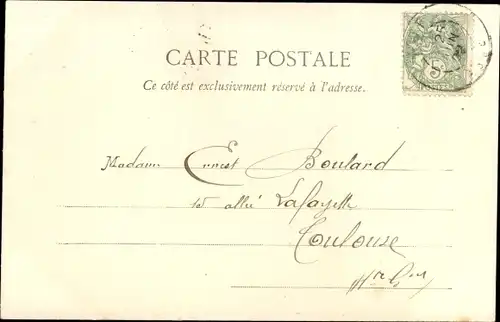 CARTE POSTALE
Ce côté est exclusivement réservé à l'adresse.
5
Madame Ernest Boulard
15 allée Lafayette
Toulouse
Hte Gne